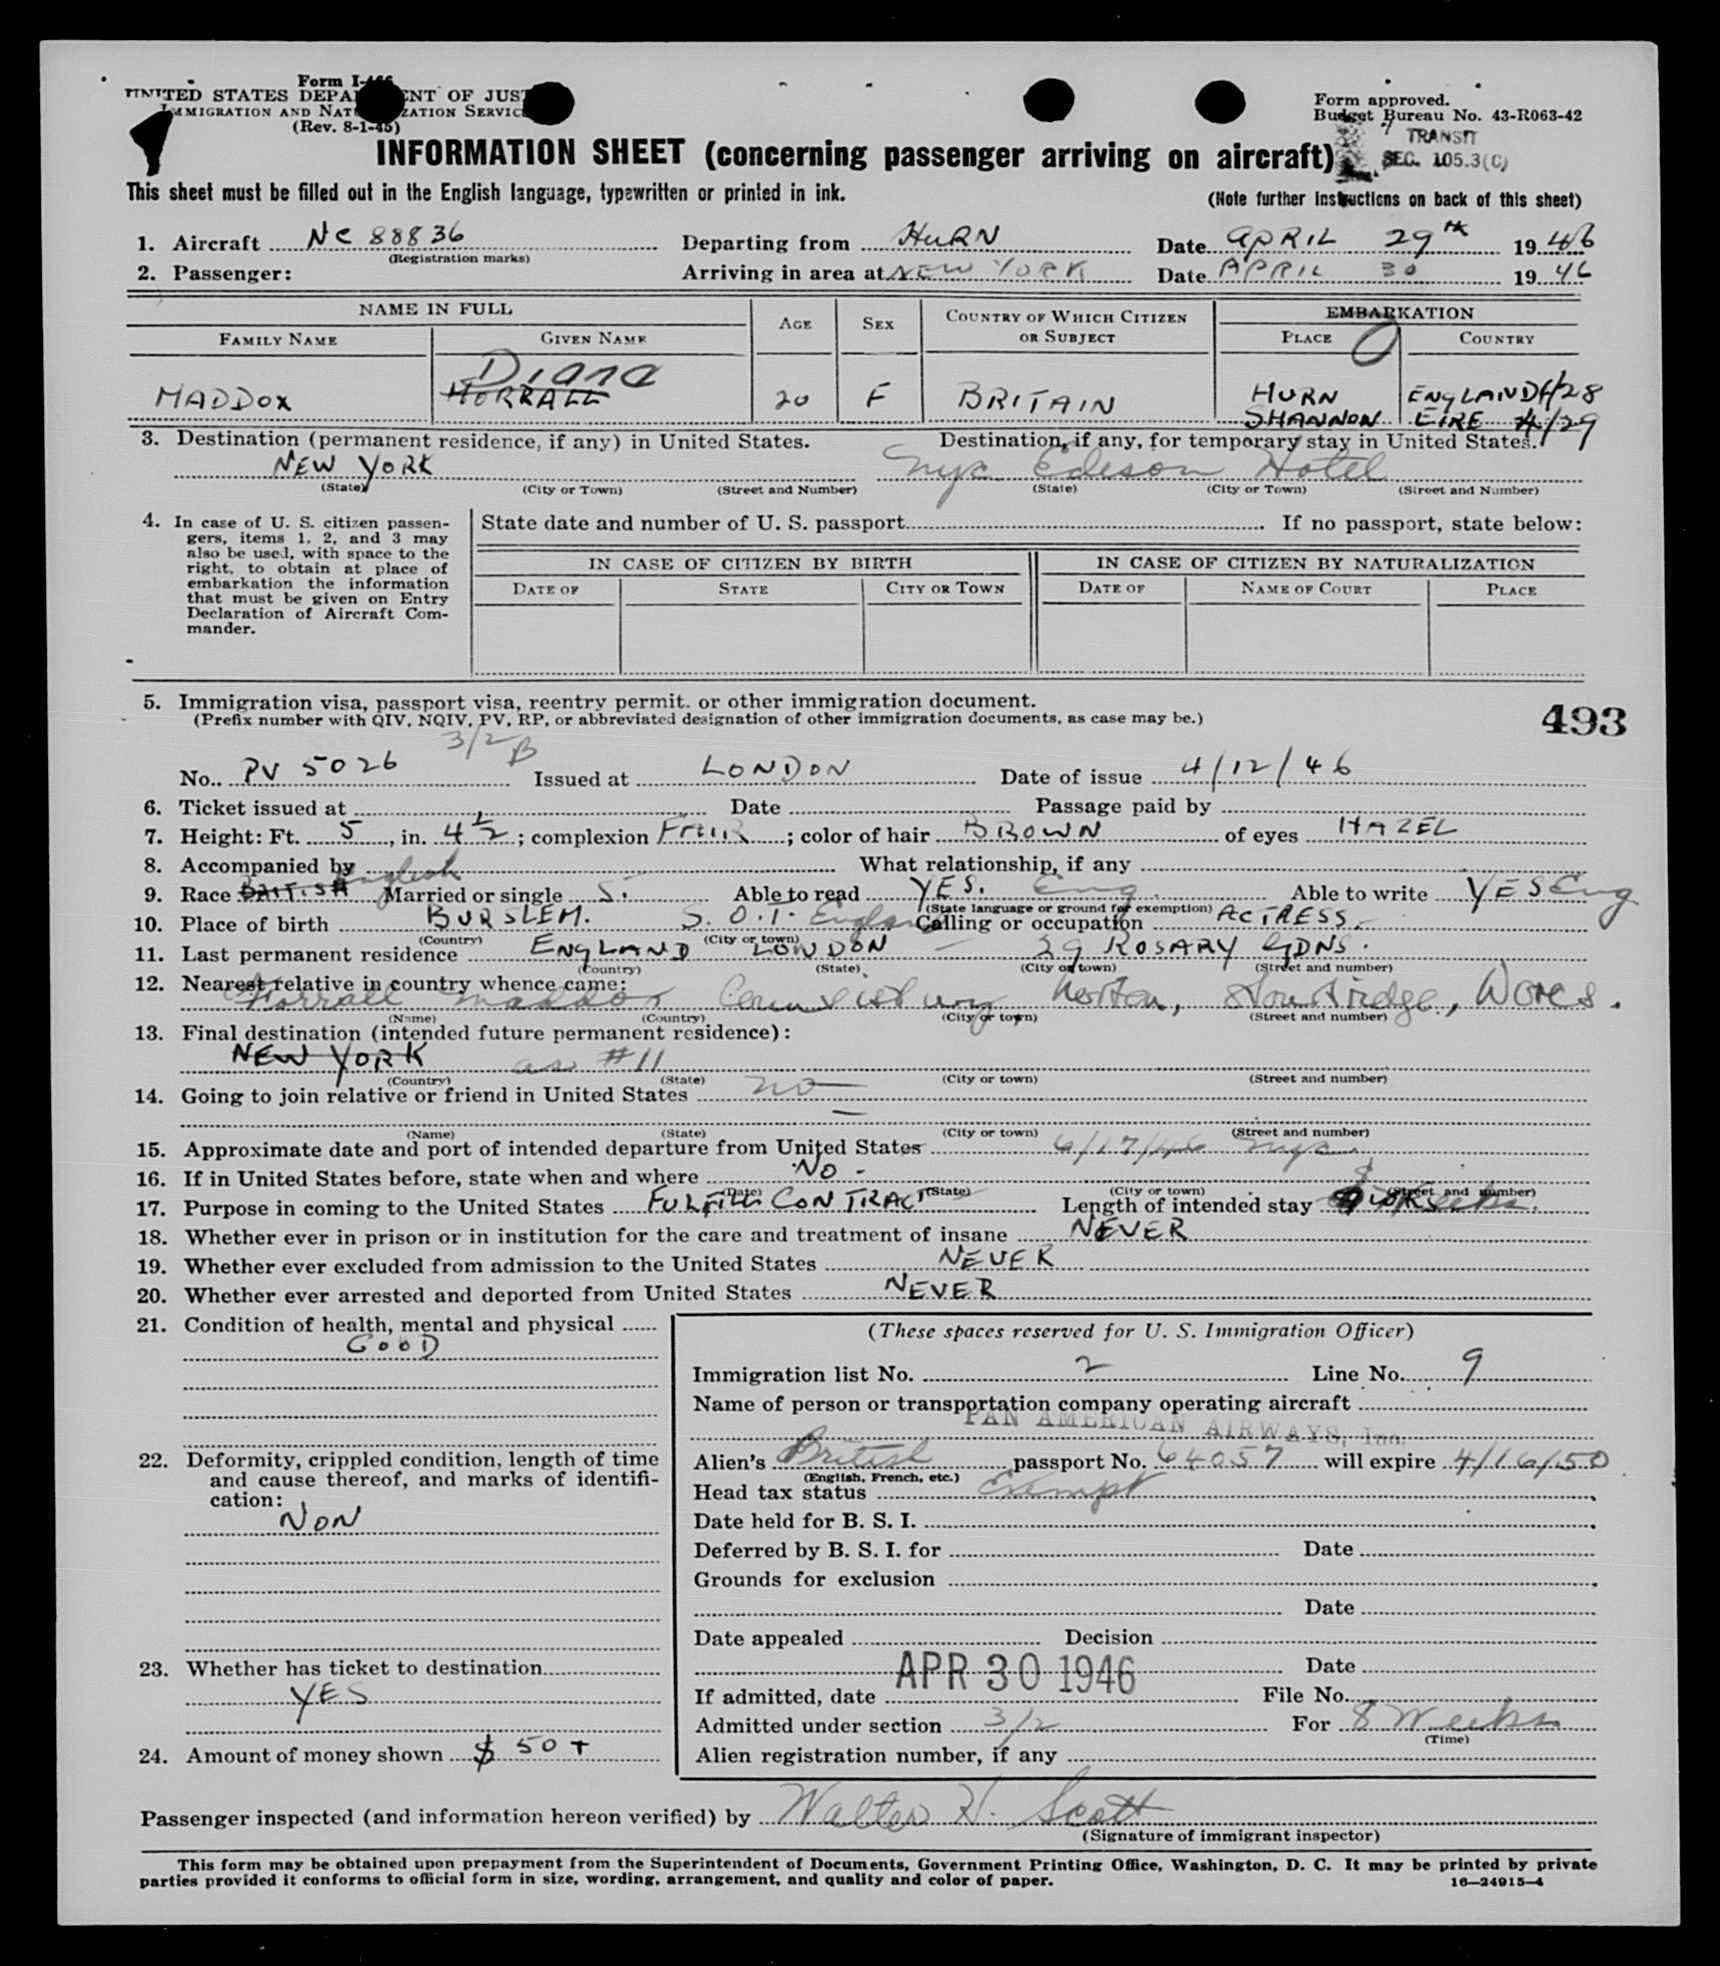 Form I-466
UNITED STATES DEPARTMENT OF JUSTICE
IMMIGRATION AND NATURALIZATION SERVICE
(Rev. 8-1-45)
Form approved.
Budget Bureau No. 43-R063-42
TRANSIT
SEC. 105.3(C)
INFORMATION SHEET (concerning passenger arriving on aircraft)
This sheet must be filled out in the English language, typewritten or printed in ink.
(Note further instructions on back of this sheet)
1. Aircraft NC 88836 Departing from HURN Date APRIL 29th 1946
(Registration marks)
2. Passenger: Arriving in area at NEW YORK Date APRIL 30 1946
NAME IN FULL AGE SEX COUNTRY OF WHICH CITIZEN OR SUBJECT EMBARKATION
FAMILY NAME GIVEN NAME PLACE COUNTRY
Diana
MADDOX HORRALL 20 F BRITAIN HURN ENGLAND 4/28
SHANNON EIRE 4/29
3. Destination (permanent residence, if any) in United States. Destination, if any, for temporary stay in United States.
NEW YORK nyc Edison Hotel
(State) (City or Town) (Street and Number) (State) (City or Town) (Street and Number)
4. In case of U. S. citizen passen-
gers, items 1, 2, and 3 may
also be used, with space to the
right, to obtain at place of
embarkation the information
that must be given on Entry
Declaration of Aircraft Com-
mander.
State date and number of U. S. passport If no passport, state below:
IN CASE OF CITIZEN BY BIRTH IN CASE OF CITIZEN BY NATURALIZATION
DATE OF STATE CITY OR TOWN DATE OF NAME OF COURT PLACE
5. Immigration visa, passport visa, reentry permit. or other immigration document.
(Prefix number with QIV, NQIV, PV, RP, or abbreviated designation of other immigration documents, as case may be.)
493
3/2 B
No. PV 5026 Issued at LONDON Date of issue 4/12/46
6. Ticket issued at Date Passage paid by
7. Height: Ft. 5, in. 4½; complexion FAIR; color of hair BROWN of eyes HAZEL
8. Accompanied by What relationship, if any
English
9. Race BRITISH Married or single S. Able to read YES. Eng. Able to write YES Eng
(State language or ground for exemption)
10. Place of birth BURSLEM. S.O.T. England Calling or occupation ACTRESS.
(Country) (City or town)
11. Last permanent residence ENGLAND LONDON 29 ROSARY GDNS.
(Country) (State) (City or town) (Street and number)
12. Nearest relative in country whence came:
Horrall Maddox Norton, Stourbridge, Worcs.
(Name) (Country) (City or town) (Street and number)
13. Final destination (intended future permanent residence):
NEW YORK as #11
(Country) (State) (City or town) (Street and number)
14. Going to join relative or friend in United States no
(Name) (State) (City or town) (Street and number)
15. Approximate date and port of intended departure from United States 6/17/46 nyc
16. If in United States before, state when and where NO -
(Date) (State) (City or town) (Street and number)
17. Purpose in coming to the United States FULFILL CONTRACT Length of intended stay 8 weeks.
18. Whether ever in prison or in institution for the care and treatment of insane NEVER
19. Whether ever excluded from admission to the United States NEVER
20. Whether ever arrested and deported from United States NEVER
21. Condition of health, mental and physical
GOOD
22. Deformity, crippled condition, length of time
and cause thereof, and marks of identifi-
cation:
NON
23. Whether has ticket to destination
YES
24. Amount of money shown $ 50 +
(These spaces reserved for U. S. Immigration Officer)
Immigration list No. 2 Line No. 9
Name of person or transportation company operating aircraft
PAN AMERICAN AIRWAYS, Inc.
Alien's British passport No. 64057 will expire 4/16/50
(English, French, etc.)
Head tax status Exempt
Date held for B. S. I.
Deferred by B. S. I. for Date
Grounds for exclusion
Date
Date appealed Decision
Date
If admitted, date APR 30 1946 File No.
Admitted under section 3/2 For 8 Weeks
(Time)
Alien registration number, if any
Passenger inspected (and information hereon verified) by Walter H. Scott
(Signature of immigrant inspector)
This form may be obtained upon prepayment from the Superintendent of Documents, Government Printing Office, Washington, D. C. It may be printed by private
parties provided it conforms to official form in size, wording, arrangement, and quality and color of paper.
16—24915-4